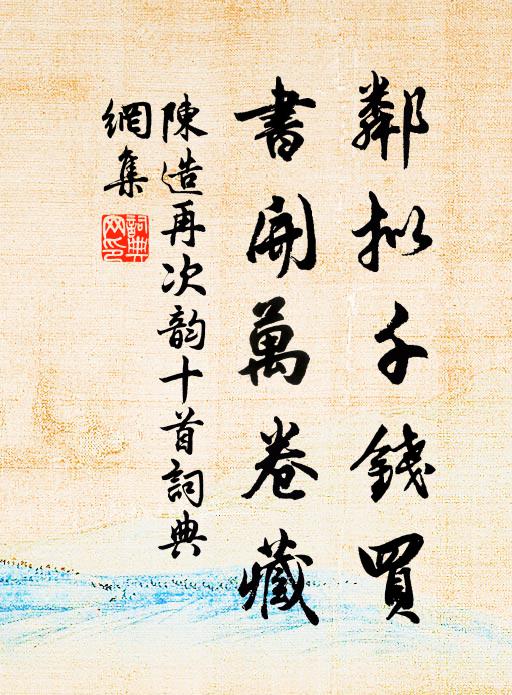 鄰拟千錢買
書開萬卷藏
陳造再次韵十首詞典
網集
詞典
网印